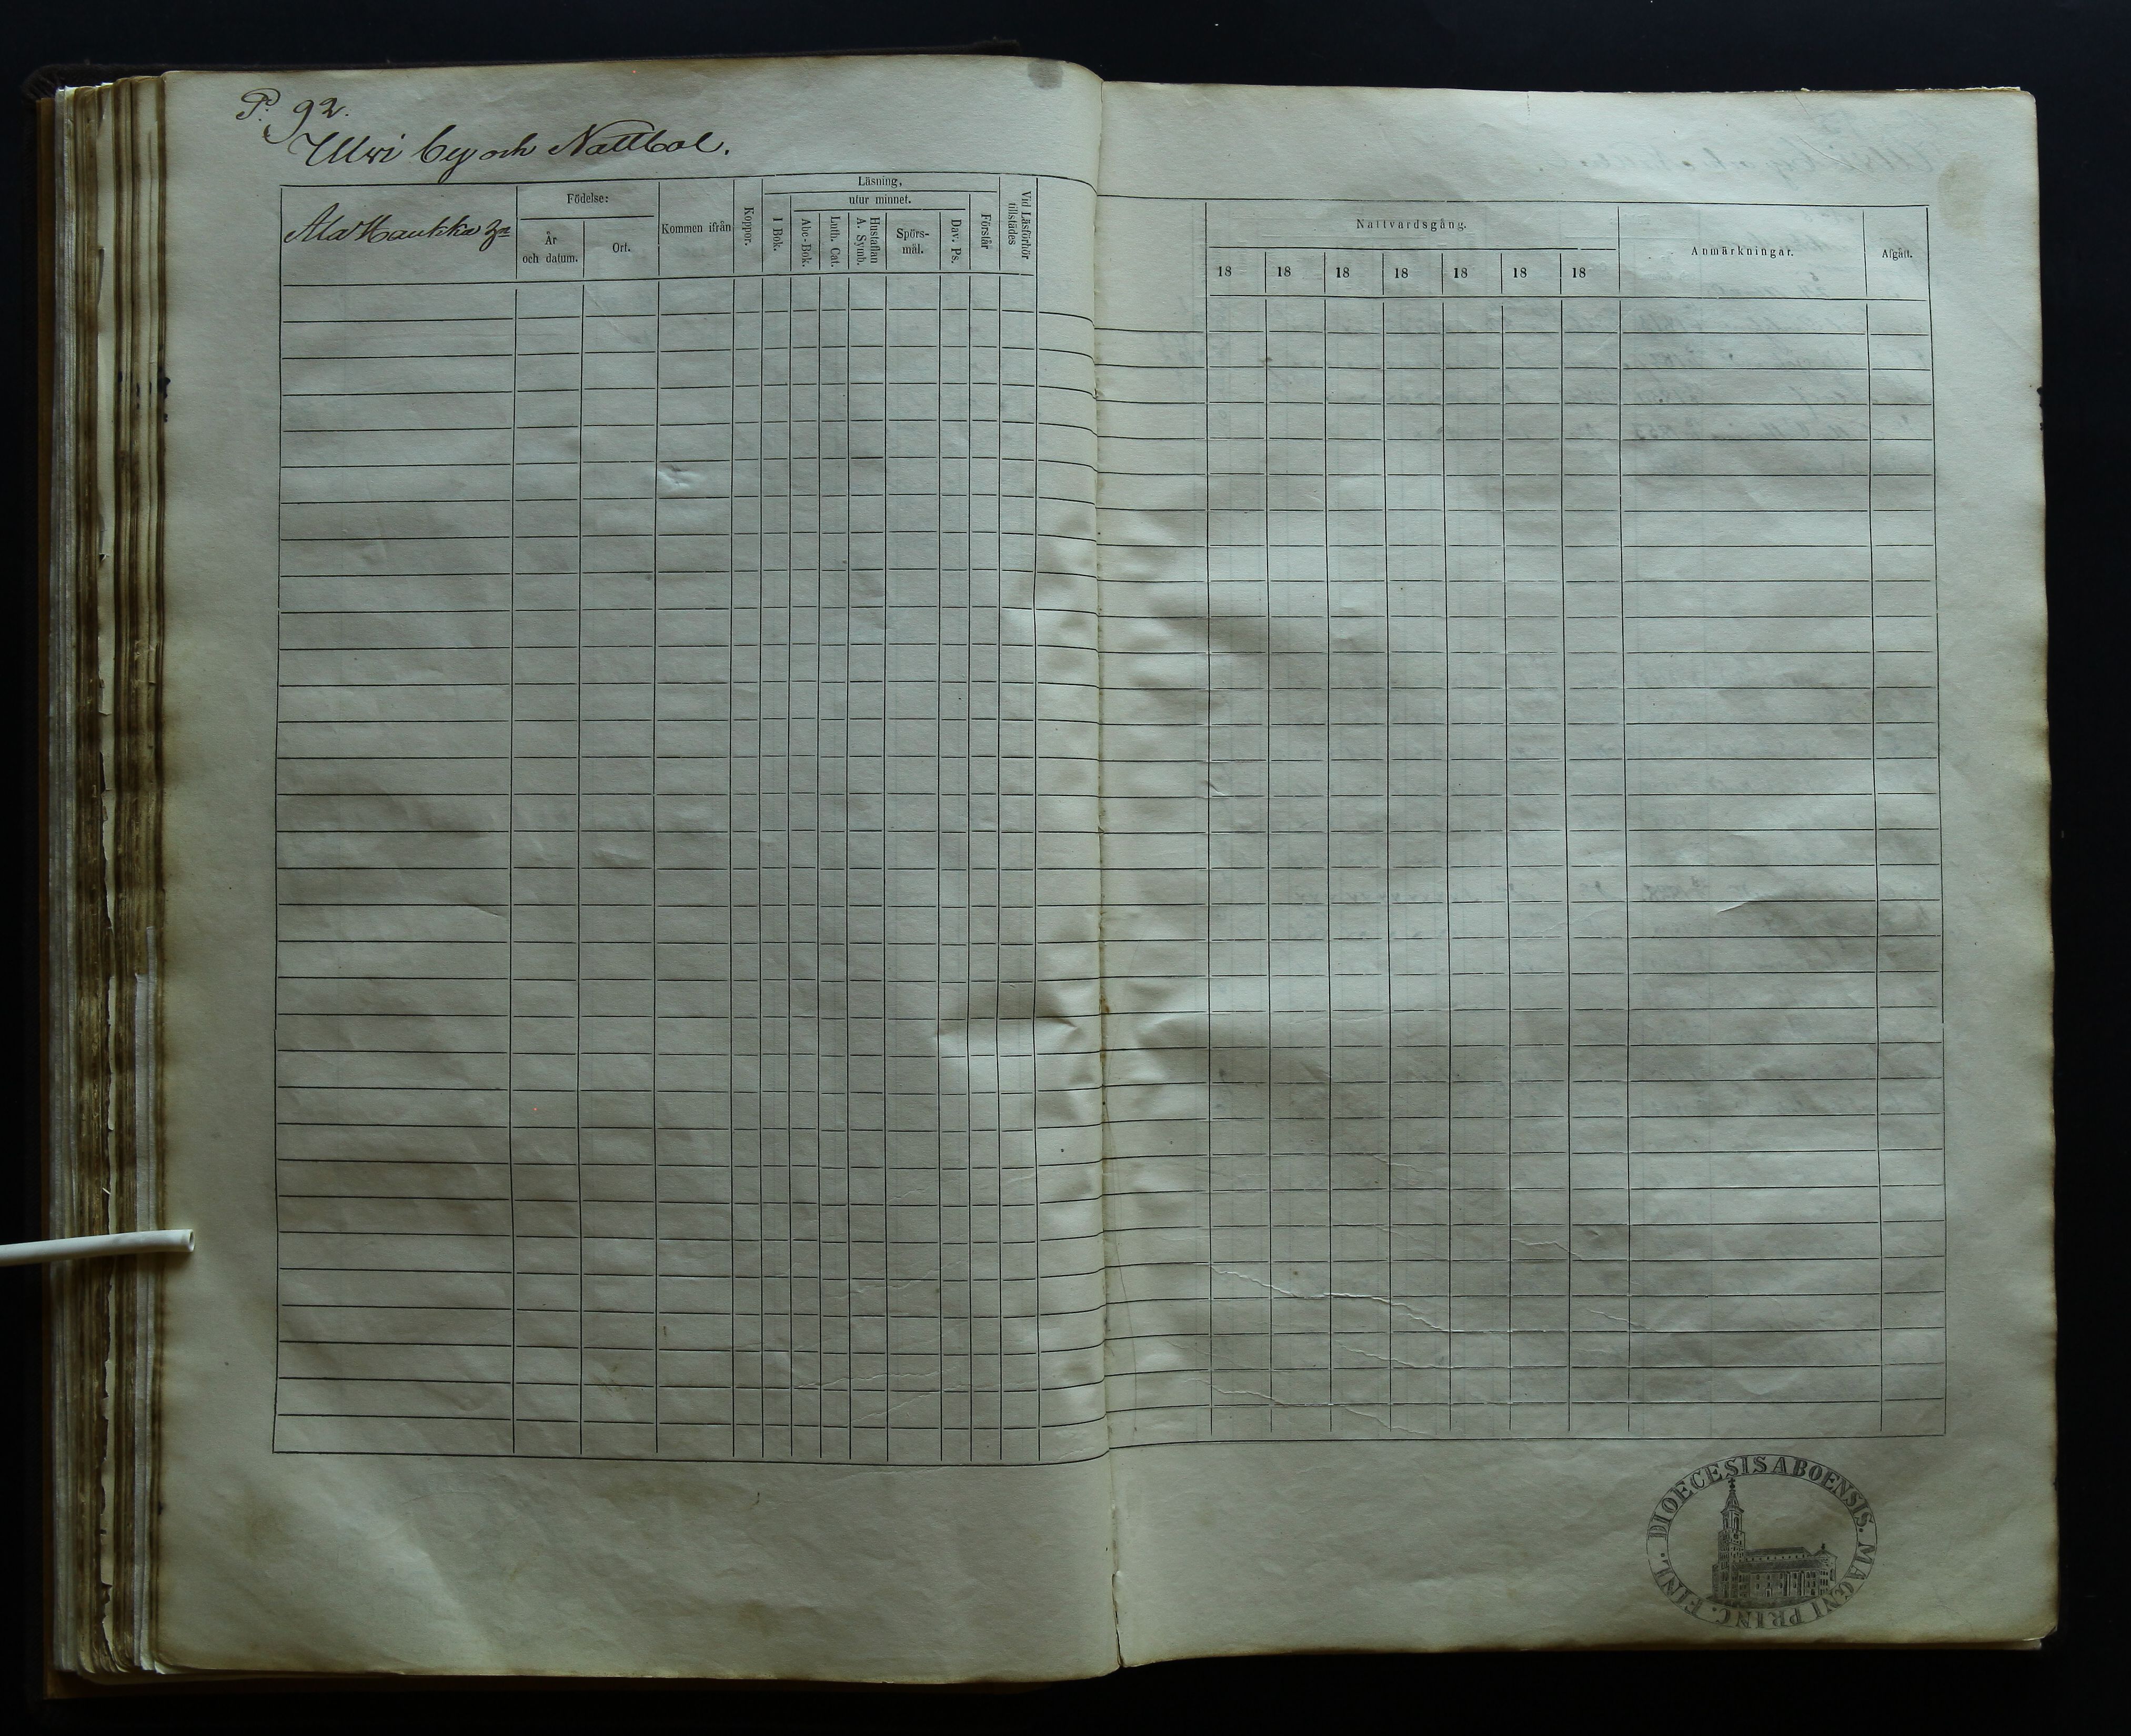 P. 92.
Ulwi by och Nattbol.
Ala Haukka
Födelse:
År
och datum.
Ort.
Kommen ifrån
Koppor.
Läsning,
utur minnet.
I Bok.
Abc-Bok.
Luth. Cat.
Hustaflan
A. Symb.
Spörs-
mål.
Dav. Ps.
Förstår
Vid Läsförhör
tillstädes
Nattvardsgång.
18 18 18 18 18 18 18
Anmärkningar.
Afgått.
DIOECESIS ABOENSIS. MAGNI PRINC. FINL.